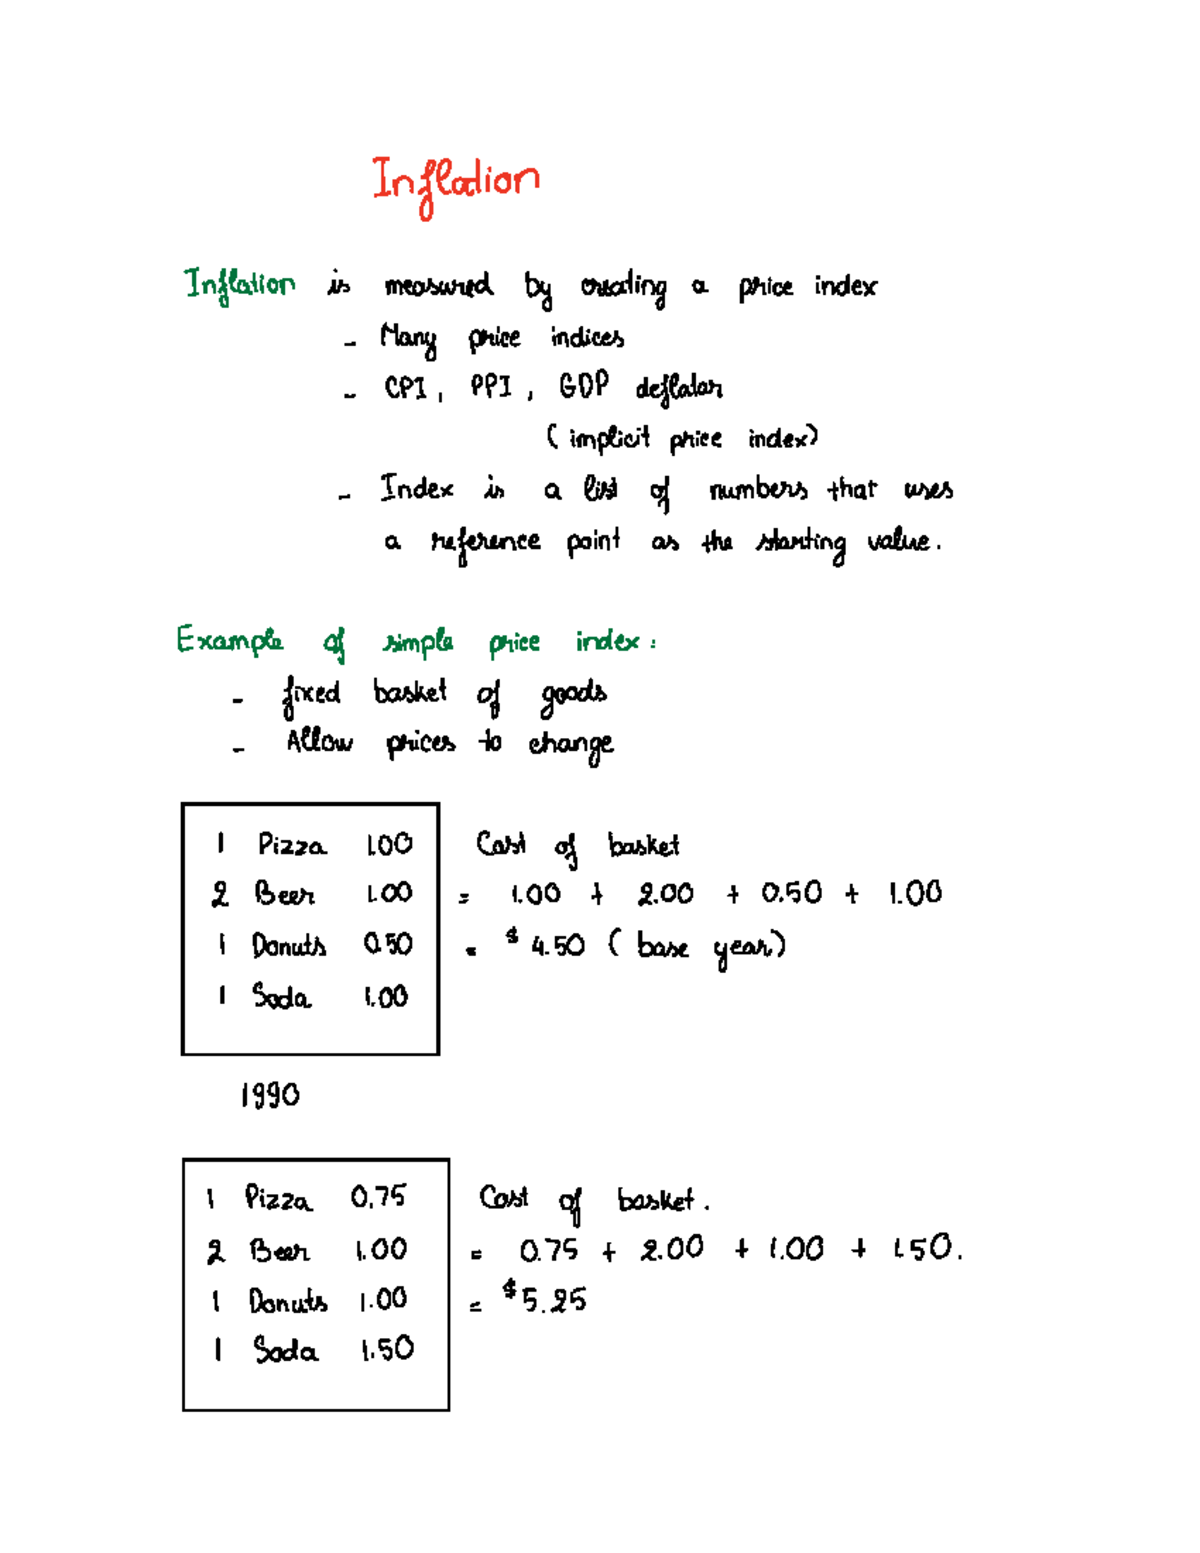 Inflation
Inflation is measured by creating a price index
- Many price indices
- CPI, PPI, GDP deflator
(implicit price index)
- Index is a list of numbers that uses
a reference point as the starting value.
Example of simple price index:
- fixed basket of goods
- Allow prices to change
1 Pizza 1.00 Cost of basket
2 Beer 1.00 = 1.00 + 2.00 + 0.50 + 1.00
1 Donuts 0.50 = $4.50 (base year)
1 Soda 1.00
1990
1 Pizza 0.75 Cost of basket.
2 Beer 1.00 = 0.75 + 2.00 + 1.00 + 1.50.
1 Donuts 1.00 = $5.25
1 Soda 1.50